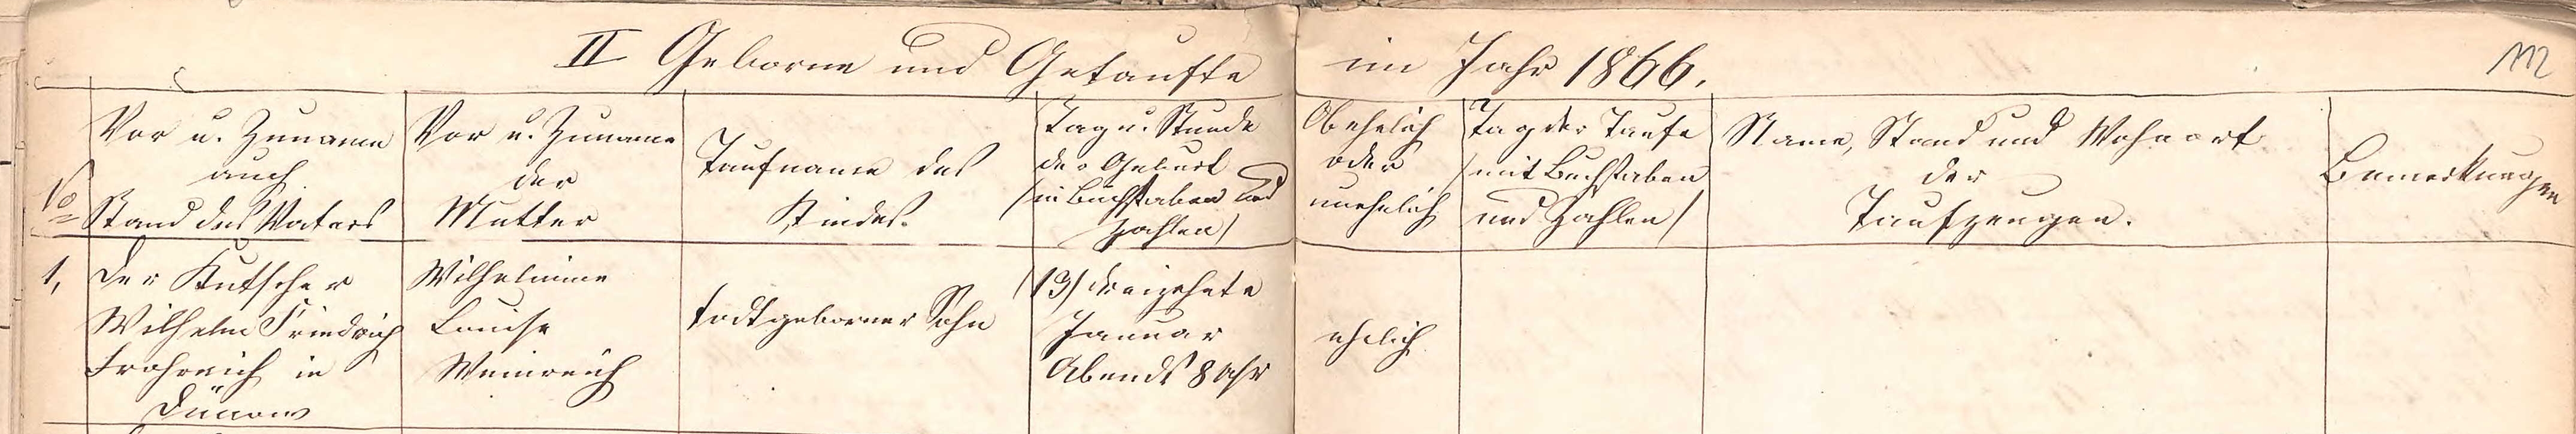 II Geborne und Getaufte im Jahr 1866.
112
No
Vor u. Zuname
auch
Stand des Vaters
Vor u. Zuname
der
Mutter
Taufname des
Kindes.
Tag u. Stunde
der Geburt
(in Buchstaben und
Zahlen)
Ob ehelich
oder
unehelich
Tag der Taufe
(mit Buchstaben
und Zahlen)
Name, Stand und Wohnort
der
Taufzeugen.
Bemerkungen
1,
Der Kutscher
Wilhelm Friedrich
Frohreich in
Dünow
Wilhelmine
Louise
Weinreich
todtgeborner Sohn
(13) dreizehnte
Januar
Abends 8 Uhr
ehelich